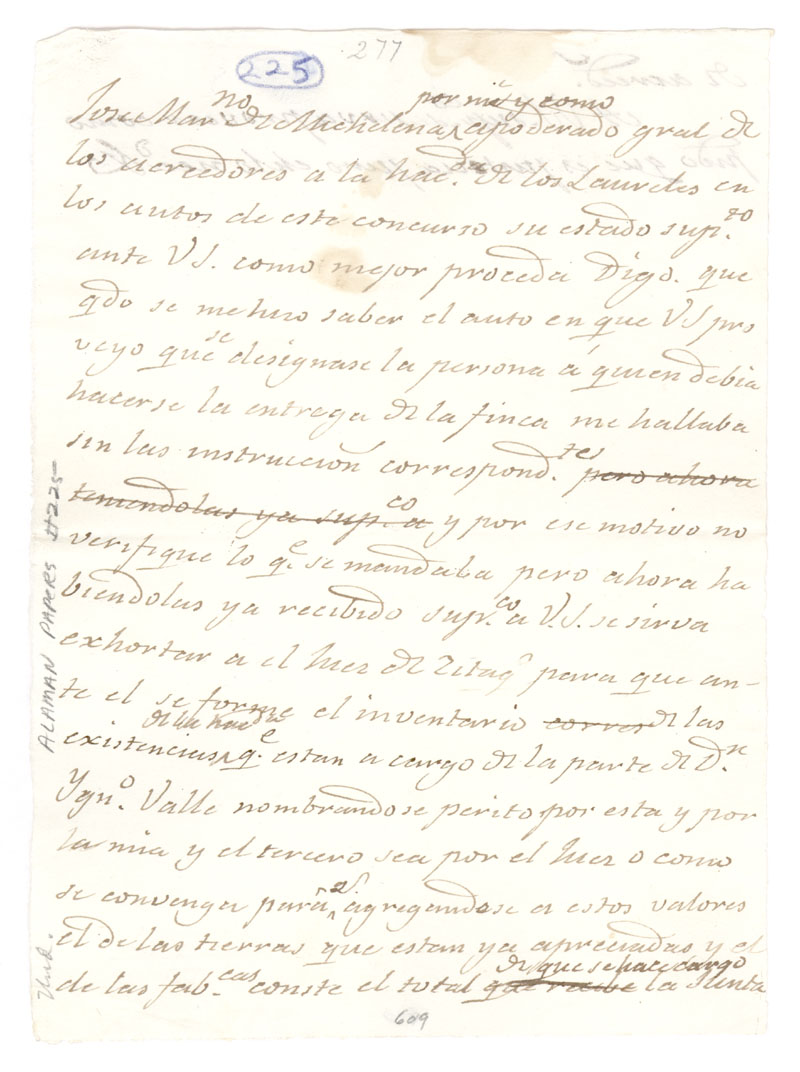 277
225
por mi y como
Jose Marno de Michelena apoderado gral de
los acreedores a la hacda de los Laureles en
los autos de este concurso su estado supto
ante VS. como mejor proceda Digo. que
qdo se me hizo saber el auto en que VS pro
veyo que se designase la persona á quien debia
hacerse la entrega de la finca me hallaba
sin las instruccion correspondtes pero ahora
teniendolas ya supco a y por ese motivo no
verifique lo qe se mandaba pero ahora ha
biendolas ya recibido supco a VS. se sirva
exhortar a el Juez de Zitaqo para que an-
te el se forme el inventario corres de las
de la hacda
existencias qe estan a cargo de la parte de Dn
Ygno Valle nombrandose perito por esta y por
la mia y el tercero sea por el Juez o como
se convenga para qe agregandose a estos valores
el de las tierras que estan ya apreciadas y el
de que se hace cargo
de las fabcas conste el total que recibe la Junta
ALAMAN PAPERS #225
Und.
609